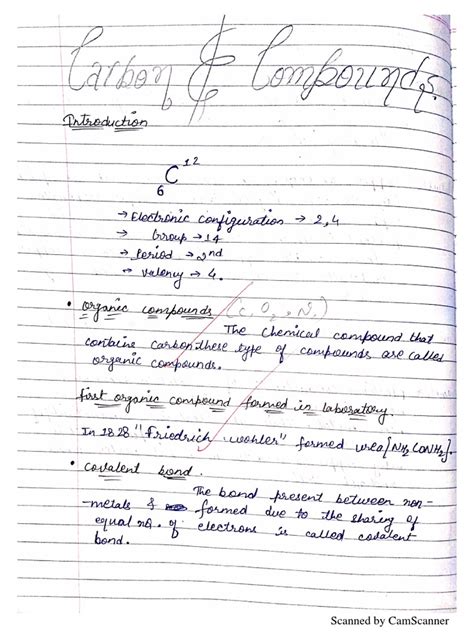 Carbon & Compounds.
Introduction
6C12
→ Electronic configuration → 2,4
→ Group → 14
→ Period → 2nd
→ Valency → 4.
• organic compounds (C, O2, N.)
The chemical compound that
contains carbon.these type of compounds are called
organic compounds.
first organic compound formed in laboratory.
In 1828 "Friedrich wohler" formed urea[NH2CONH2].
• covalent bond.
The bond present between non-
-metals & formed due to the sharing of
equal no. of electrons is called covalent
bond.
Scanned by CamScanner